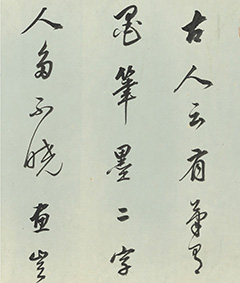 古人云有筆有
墨筆墨二字
人多不曉畫豈